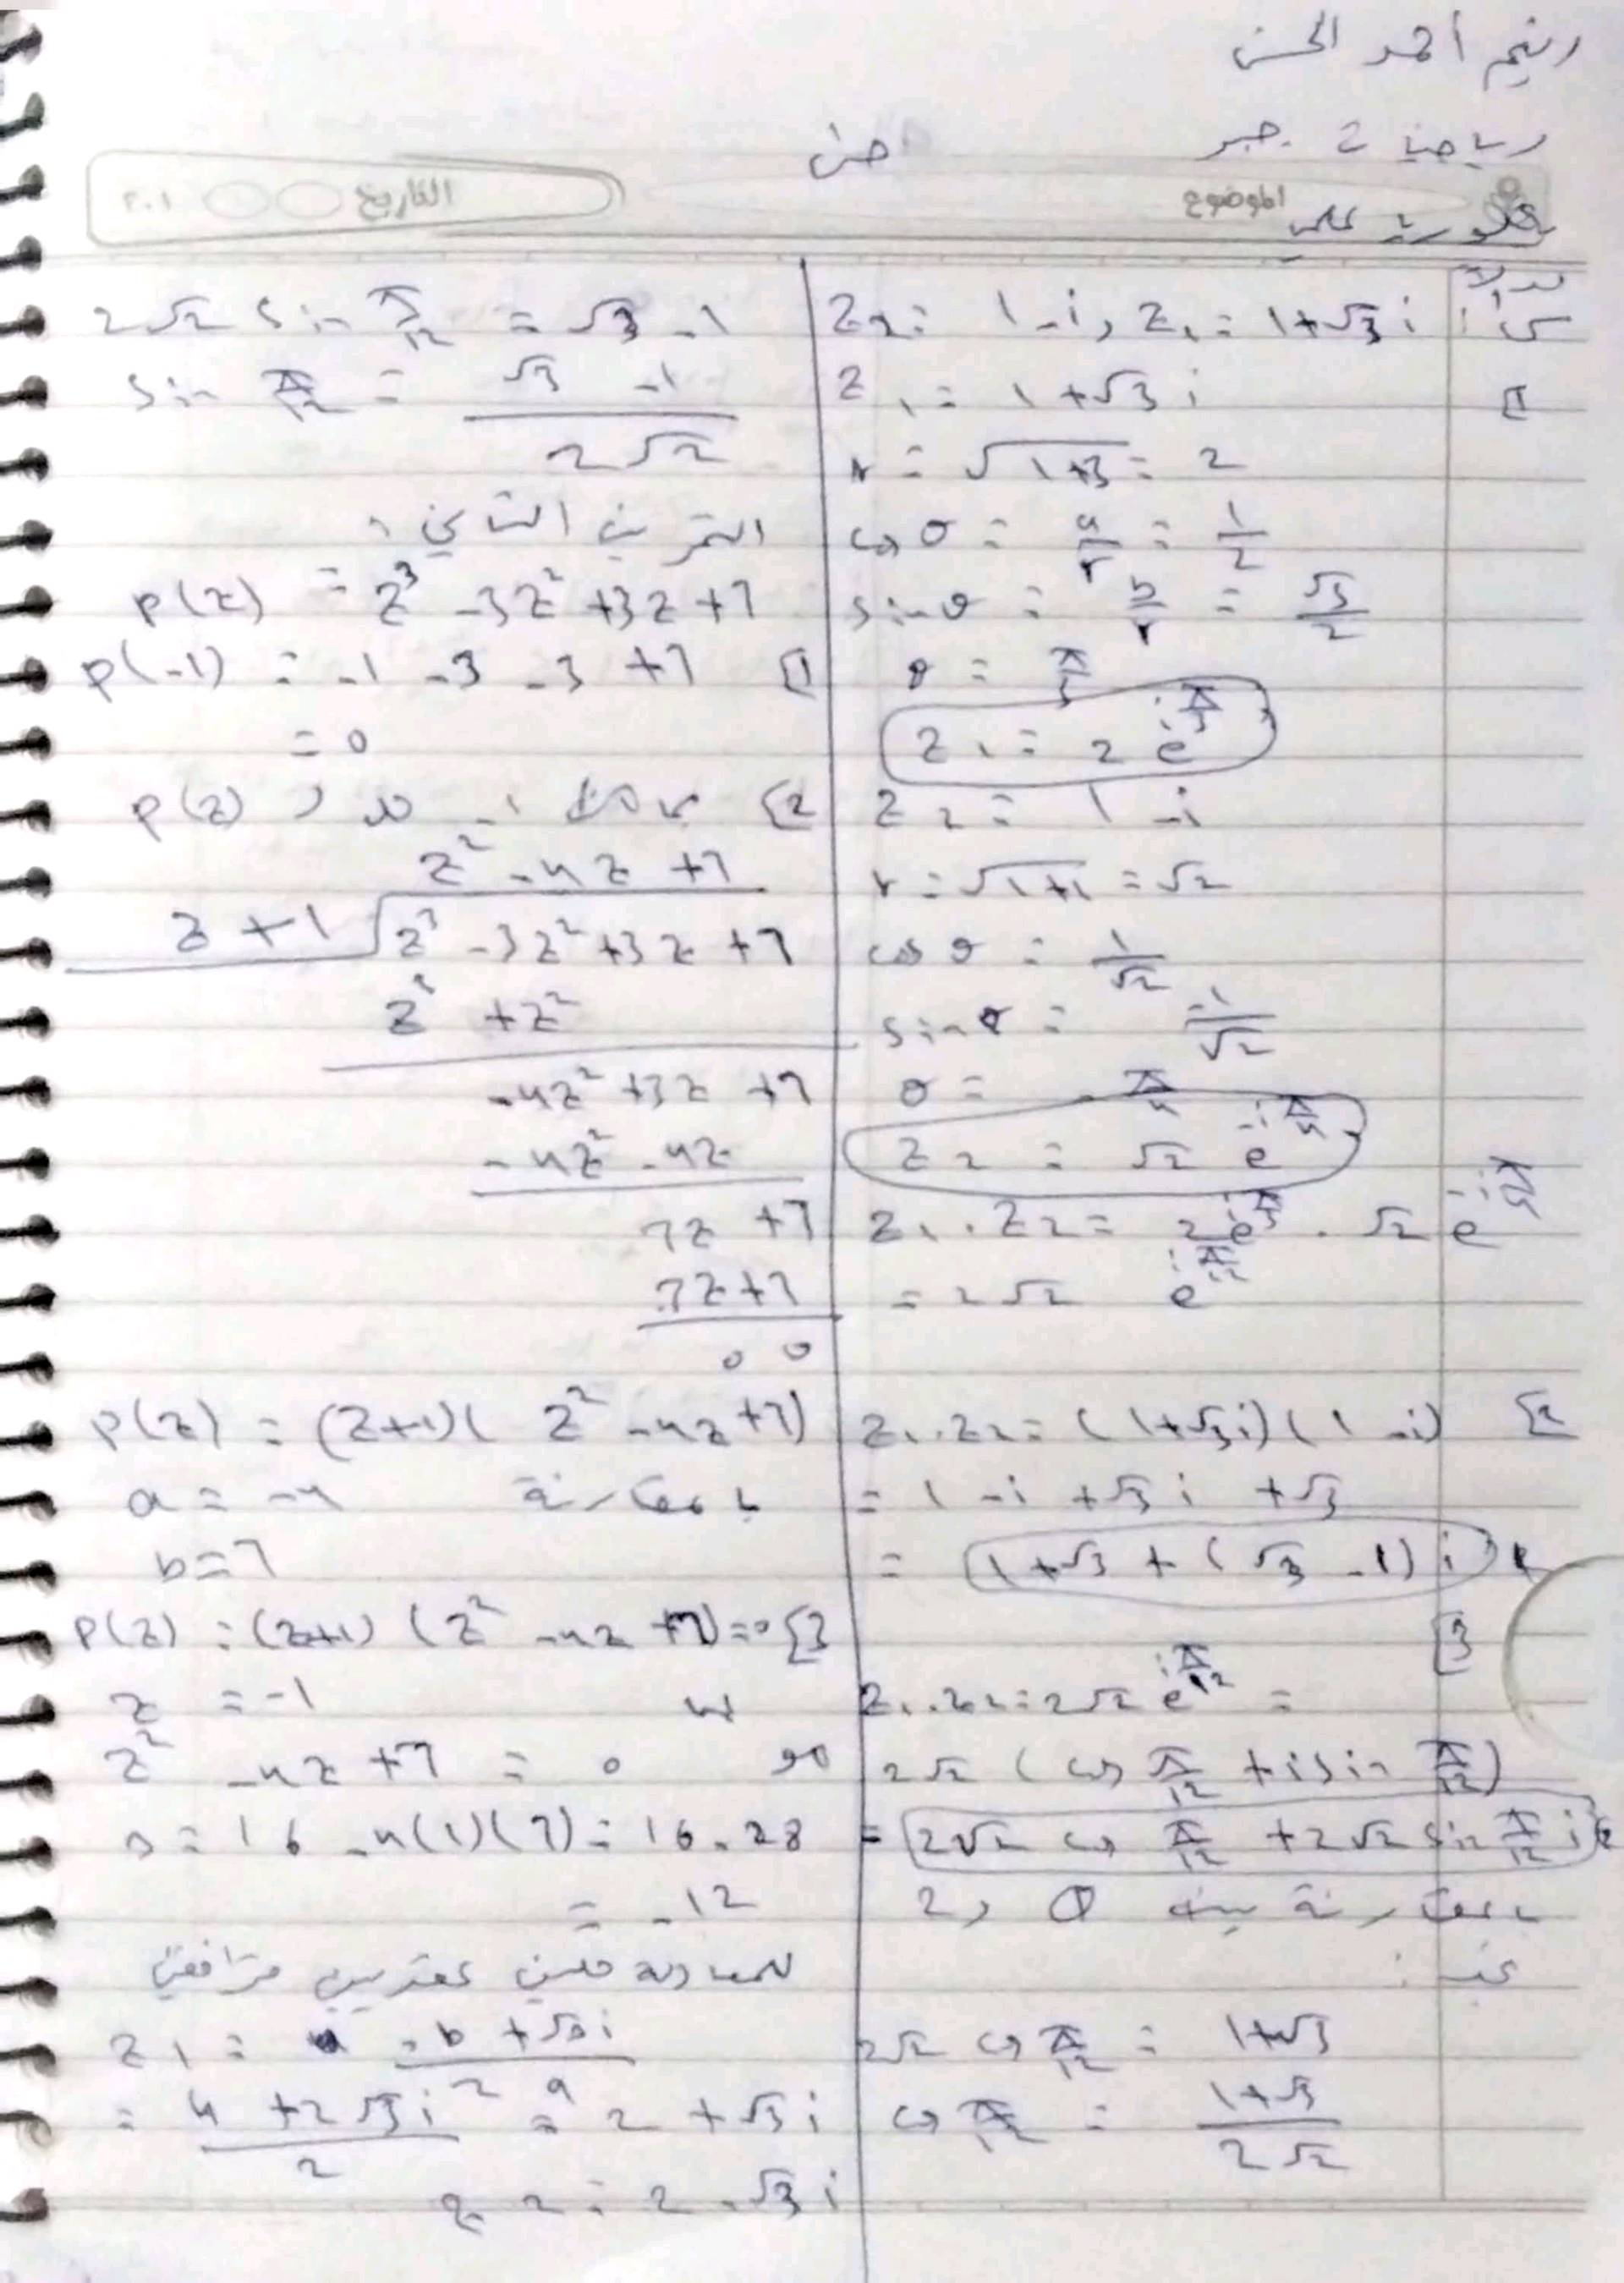 رنيم أحمد الحسن
رياضيات جبر
حمص
بكلوريا علمي
الموضوع
التاريخ
٢٠١
Z₂ = 1 - i , Z₁ = 1+√3 i
1]
Z₁ = 1+√3 i
r = √(1+3) = 2
cos θ = a/r = 1/2
sin θ = b/r = √3/2
θ = π/3
Z₁ = 2 e^(iπ/3)
Z₂ = 1 - i
r = √(1+1) = √2
cos θ = 1/√2
sin θ = -1/√2
θ = -π/4
Z₂ = √2 e^(-iπ/4)
Z₁ . Z₂ = 2e^(iπ/3) . √2 e^(-iπ/4)
= 2√2 e^(iπ/12)
2]
Z₁ . Z₂ = (1+√3 i)(1 - i)
= 1 - i + √3 i + √3
= 1+√3 + (√3 - 1) i
3]
Z₁ . Z₂ = 2√2 e^(iπ/12) =
2√2 ( cos π/12 + i sin π/12 )
= 2√2 cos π/12 + 2√2 sin π/12 i
بمقارنة بين ① و 2
نجد :
2√2 cos π/12 = 1+√3
cos π/12 = (1+√3)/(2√2)
2√2 sin π/12 = √3 - 1
sin π/12 = (√3 - 1)/(2√2)
التمرين الثاني :
p(z) = z³ - 3z² + 3z + 7
1] p(-1) = -1 - 3 - 3 + 7
= 0
2] p(z)
z² - 4z + 7
z + 1 √ z³ - 3z² + 3z + 7
z³ + z²
-4z² + 3z + 7
-4z² - 4z
7z + 7
7z + 7
0 0
p(z) = (z+1)( z² - 4z + 7)
بالمقارنة a = -4
b = 7
3] p(z) = (z+1) (z² - 4z + 7) = 0
z = -1
z² - 4z + 7 = 0
Δ = 16 - 4(1)(7) = 16 - 28
= -12
للمعادلة حلين عقديين مترافقين
z₁ = (-b + √Δ i)/(2a)
= (4 + 2√3 i)/2 = 2 + √3 i
z₂ = 2 - √3 i